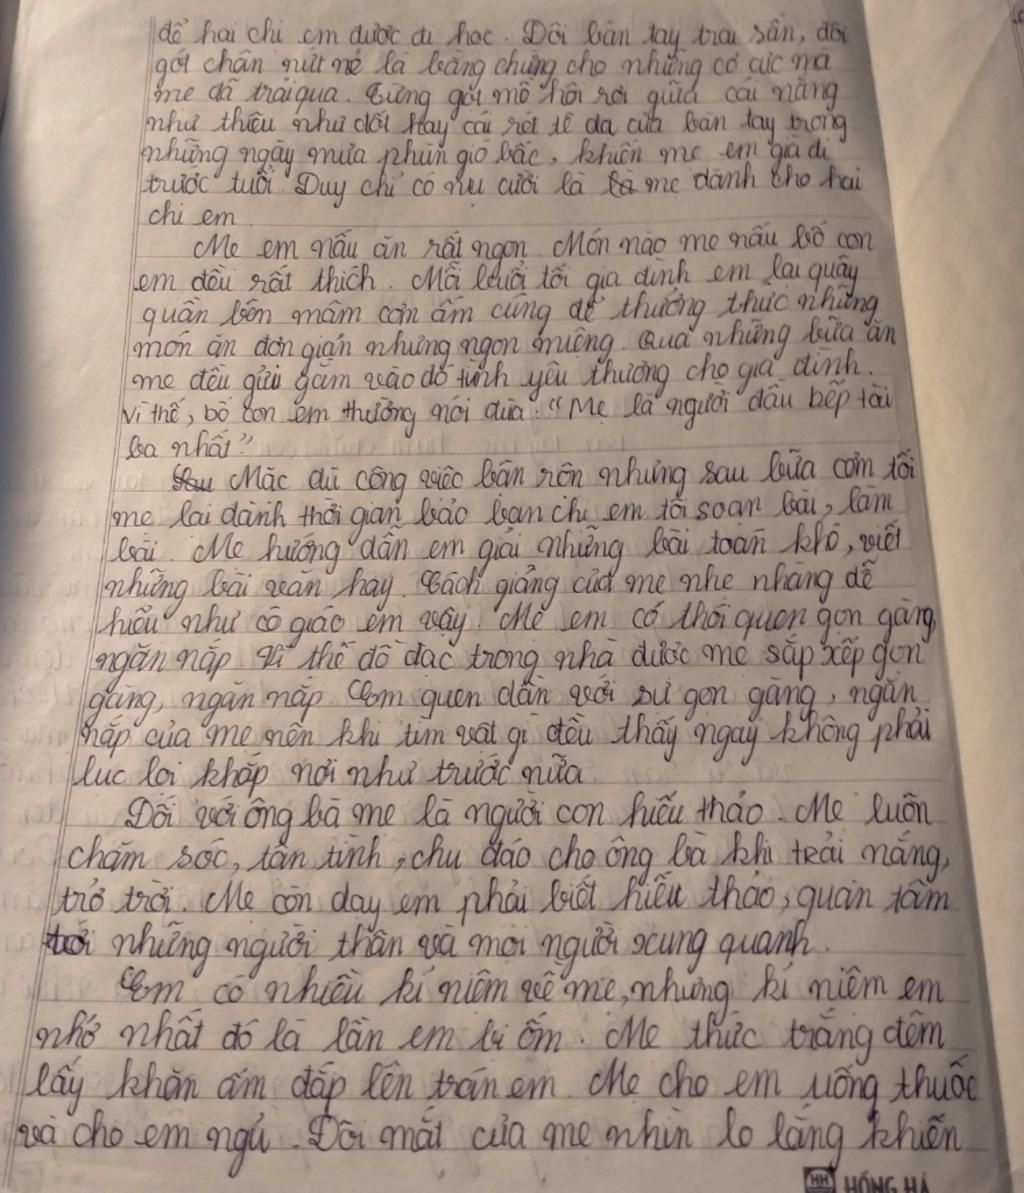 để hai chị em được đi học. Đôi bàn tay trai sần, đôi
gót chân nứt nẻ là bằng chứng cho những cơ cực mà
mẹ đã trải qua. Từng giọt mồ hôi rơi giữa cái nắng
như thiêu như đốt hay cái rét tê da của bàn tay trong
những ngày mưa phùn gió bấc, khiến mẹ em già đi
trước tuổi. Duy chỉ có nụ cười là mẹ dành cho hai
chị em
Mẹ em nấu ăn rất ngon. Món nào mẹ nấu bố con
em đều rất thích. Mỗi buổi tối gia đình em lại quây
quần bên mâm cơm ấm cúng để thưởng thức những
món ăn đơn giản nhưng ngon miệng. Qua những bữa ăn
mẹ đều gửi gắm vào đó tình yêu thương cho gia đình.
Vì thế, bố con em thường nói đùa: "Mẹ là người đầu bếp tài
ba nhất"
Mặc dù công việc bận rộn nhưng sau bữa cơm tối
mẹ lại dành thời gian bảo ban chị em tôi soạn bài, làm
bài. Mẹ hướng dẫn em giải những bài toán khó, viết
những bài văn hay. Cách giảng của mẹ nhẹ nhàng dễ
hiểu như cô giáo em vậy. Mẹ em có thói quen gọn gàng,
ngăn nắp. Vì thế đồ đạc trong nhà được mẹ sắp xếp gọn
gàng, ngăn nắp. Em quen dần với sự gọn gàng, ngăn
nắp của mẹ nên khi tìm vật gì đều thấy ngay không phải
lục lọi khắp nơi như trước nữa
Đối với ông bà mẹ là người con hiếu thảo. Mẹ luôn
chăm sóc, tận tình, chu đáo cho ông bà khi trải nắng,
trở trời. Mẹ còn dạy em phải biết hiếu thảo, quan tâm
tới những người thân và mọi người xung quanh.
Em có nhiều kỉ niệm về mẹ, nhưng kỉ niệm em
nhớ nhất đó là lần em bị ốm. Mẹ thức trắng đêm
lấy khăn ấm đắp lên trán em. Mẹ cho em uống thuốc
và cho em ngủ. Đôi mắt của mẹ nhìn lo lắng khiến
HH HỒNG HÀ